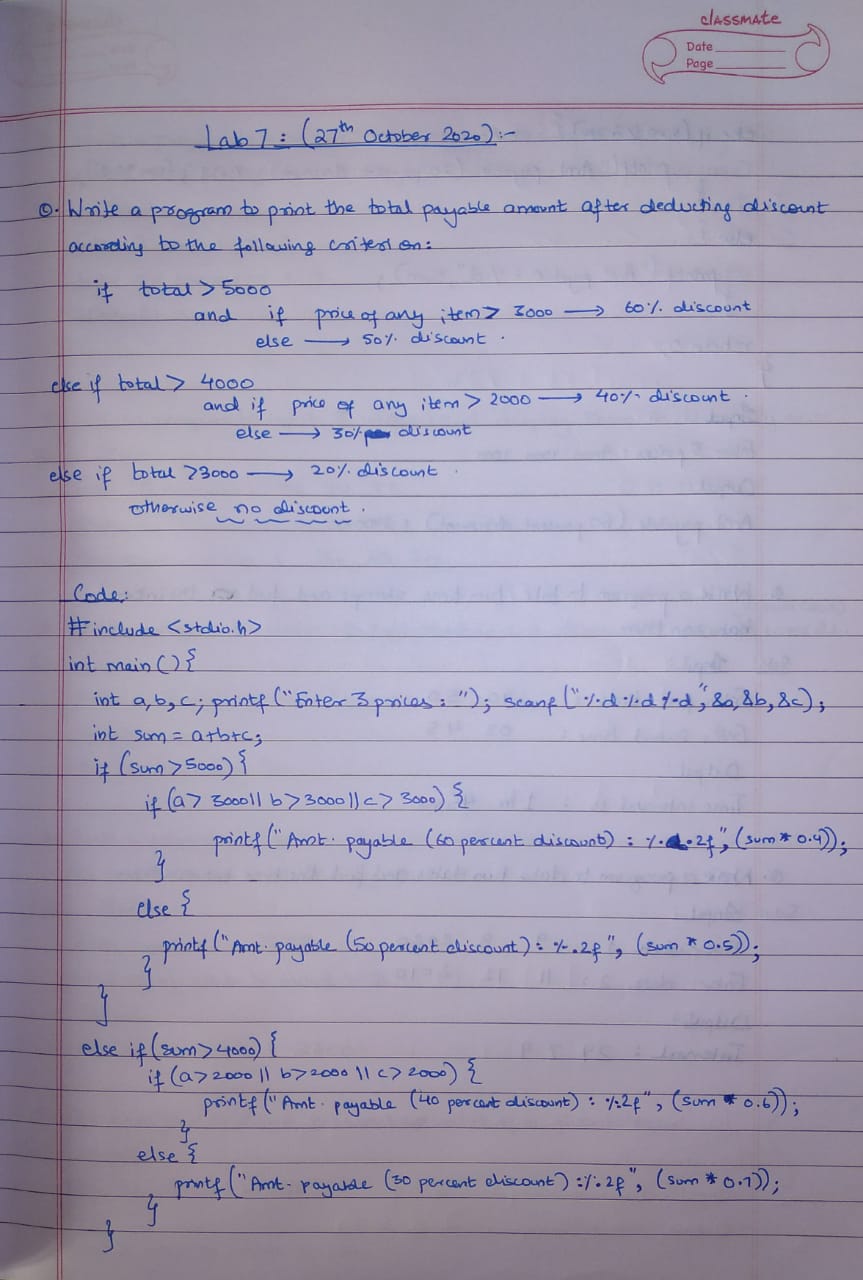 classmate
Date
Page
Lab 7 : (27th October 2020) :-
Q. Write a program to print the total payable amount after deducting discount
according to the following criterion:
if total > 5000
and if price of any item > 3000 → 60% discount
else → 50% discount.
else if total > 4000
and if price of any item > 2000 → 40% discount.
else → 30% discount
else if total >3000 → 20% discount.
otherwise no discount.
Code:
#include <stdio.h>
int main () {
int a, b, c; printf ("Enter 3 prices : "); scanf ("%d %d %d", &a, &b, &c);
int sum = a+b+c;
if (sum > 5000) {
if (a > 3000 || b > 3000 || c > 3000) {
printf ("Amt. payable (60 percent discount) : %.2f", (sum * 0.4));
}
else {
printf ("Amt. payable (50 percent discount) : %.2f ", (sum * 0.5));
}
}
else if (sum > 4000) {
if (a > 2000 || b > 2000 || c > 2000) {
printf ("Amt. payable (40 percent discount) : %.2f", (sum * 0.6));
}
else {
printf ("Amt. payable (30 percent discount) : %.2f ", (sum * 0.7));
}
}